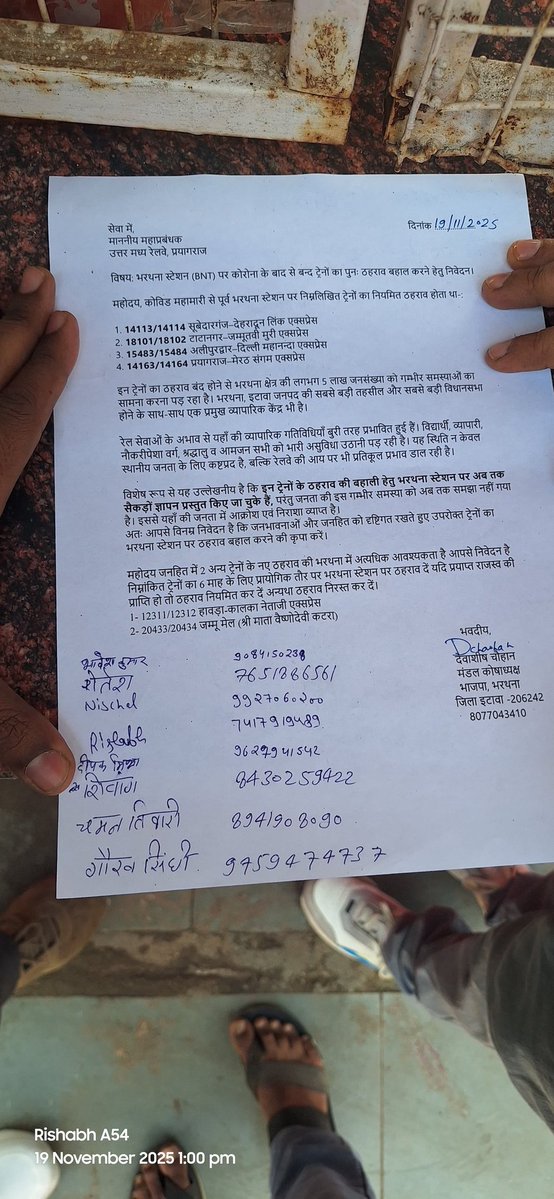 सेवा में,
माननीय महाप्रबंधक
उत्तर मध्य रेलवे, प्रयागराज
दिनांक 19/11/2025
विषय: भरथना स्टेशन (BNT) पर कोरोना के बाद से बन्द ट्रेनों का पुनः ठहराव बहाल करने हेतु निवेदन।
महोदय, कोविड महामारी से पूर्व भरथना स्टेशन पर निम्नलिखित ट्रेनों का नियमित ठहराव होता था-:
1. 14113/14114 सूबेदारगंज–देहरादून लिंक एक्सप्रेस
2. 18101/18102 टाटानगर–जम्मूतवी मुरी एक्सप्रेस
3. 15483/15484 अलीपुरद्वार–दिल्ली महानन्दा एक्सप्रेस
4. 14163/14164 प्रयागराज–मेरठ संगम एक्सप्रेस
इन ट्रेनों का ठहराव बंद होने से भरथना क्षेत्र की लगभग 5 लाख जनसंख्या को गम्भीर समस्याओं का
सामना करना पड़ रहा है। भरथना, इटावा जनपद की सबसे बड़ी तहसील और सबसे बड़ी विधानसभा
होने के साथ-साथ एक प्रमुख व्यापारिक केंद्र भी है।
रेल सेवाओं के अभाव से यहाँ की व्यापारिक गतिविधियाँ बुरी तरह प्रभावित हुई हैं। विद्यार्थी, व्यापारी,
नौकरीपेशा वर्ग, श्रद्धालु व आमजन सभी को भारी असुविधा उठानी पड़ रही है। यह स्थिति न केवल
स्थानीय जनता के लिए कष्टप्रद है, बल्कि रेलवे की आय पर भी प्रतिकूल प्रभाव डाल रही है।
विशेष रूप से यह उल्लेखनीय है कि इन ट्रेनों के ठहराव की बहाली हेतु भरथना स्टेशन पर अब तक
सैकड़ों ज्ञापन प्रस्तुत किए जा चुके है, परंतु जनता की इस गम्भीर समस्या को अब तक समझा नहीं गया
है। इससे यहाँ की जनता में आक्रोश एवं निराशा व्याप्त है।
अतः आपसे विनम्र निवेदन है कि जनभावनाओं और जनहित को दृष्टिगत रखते हुए उपरोक्त ट्रेनों का
भरथना स्टेशन पर ठहराव बहाल करने की कृपा करें।
महोदय जनहित में 2 अन्य ट्रेनों के नए ठहराव की भरथना में अत्यधिक आवश्यकता है आपसे निवेदन है
निम्नांकित ट्रेनों का 6 माह के लिए प्रायोगिक तौर पर भरथना स्टेशन पर ठहराव दें यदि प्रयाप्त राजस्व की
प्राप्ति हो तो ठहराव नियमित कर दें अन्यथा ठहराव निरस्त कर दें।
1- 12311/12312 हावड़ा-कालका नेताजी एक्सप्रेस
2- 20433/20434 जम्मू मेल (श्री माता वैष्णोदेवी कटरा)
भवदीय,
देवाशीष चौहान
मंडल कोषाध्यक्ष
भाजपा, भरथना
जिला इटावा -206242
8077043410
कुमार 9084150238
7651886561
Nischal 9927060200
Rishabh 7417919489
दीपक 9627941542
शिवांग 8430259422
चमन तिवारी 8941908090
गौरव सिंधी 9759474737
Rishabh A54
19 November 2025 1:00 pm